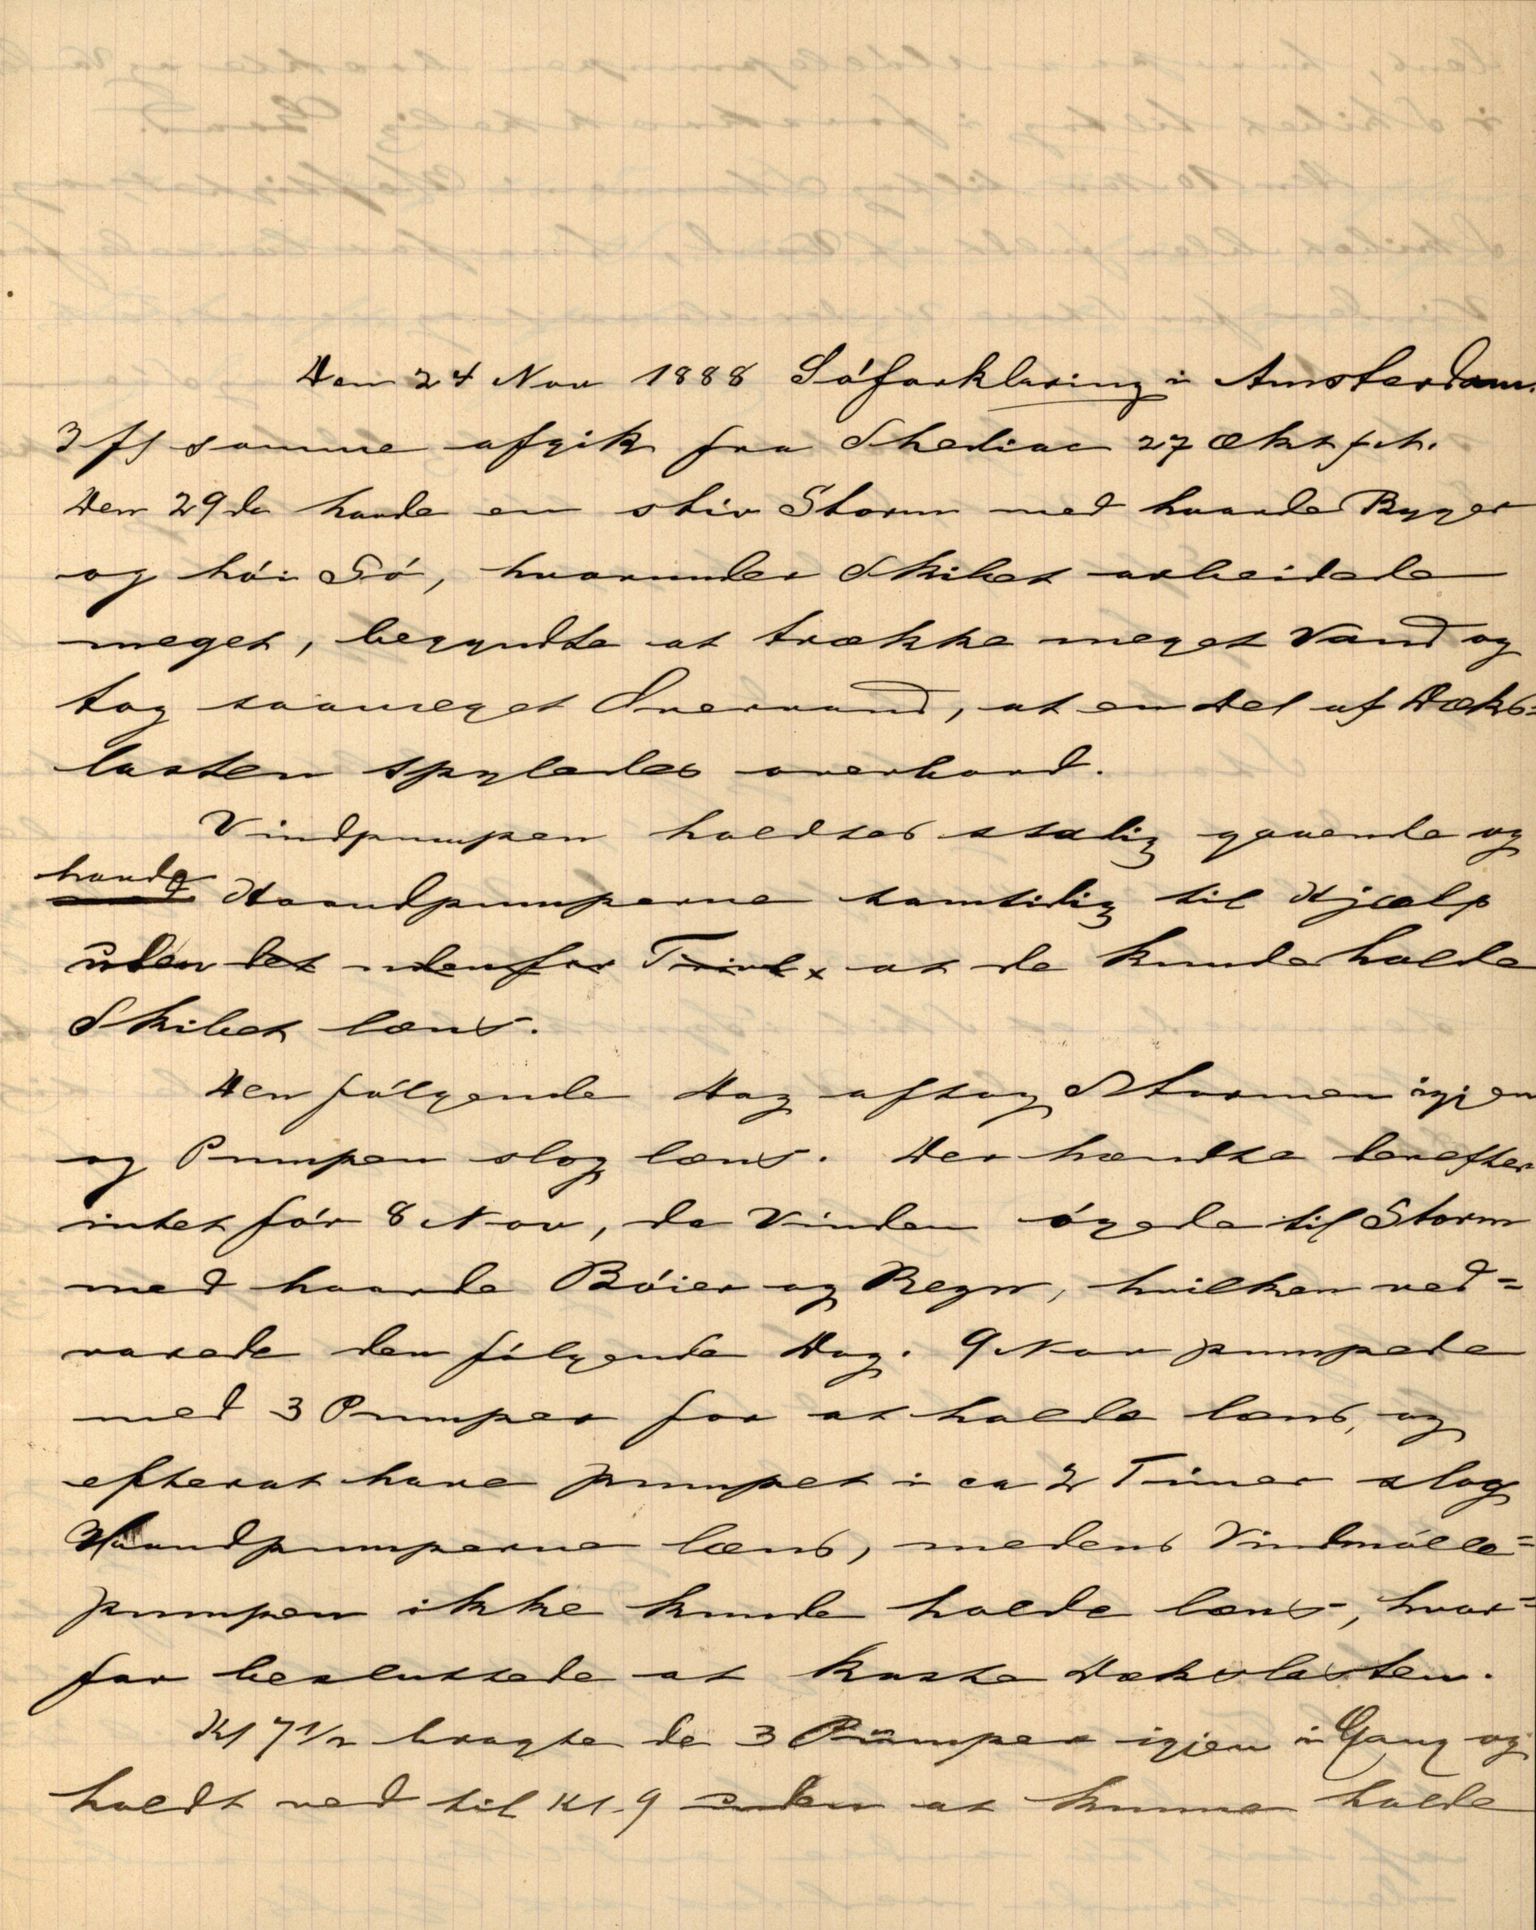 Den 24 Nov 1888 Söforklaring i Amsterdam.
Ifl samme afgik fra Shediac 27 Okt f. A.
Den 29de havde en stiv Storm med haarde Byger
og höi Sö, hvorunder Skibet arbeidede
meget, begyndte at trække meget Vand og
tog saameget Overvand, at en Del af Dæks=
lasten spyledes overbord.
Vindpumpen holdtes stadig gaaende og
havde
Haandpumperne samtidig til Hjælp
uden det udenfor Tvivl, at de kunde holde
Skibet læns.
Den fölgende Dag aftog Stormen igjen
og Pumpen slog læns. Der hændte derefter
intet för 8 Nov, da Vinden ögede til Storm
med haarde Böier og Regn, hvilken ved=
varede den fölgende Dag. 9 Nov pumpede
med 3 Pumper for at holde læns, og
efterat have pumpet i ca 2 Timer slog
Haandpumperne læns, medens Vindmölle=
pumpen ikke kunde holde læns, hvor=
for besluttede at kaste Dækslasten.
Kl 7 1/2 bragte de 3 Pumper igjen i Gang og
holdt ved til Kl. 9 uden at kunne holde